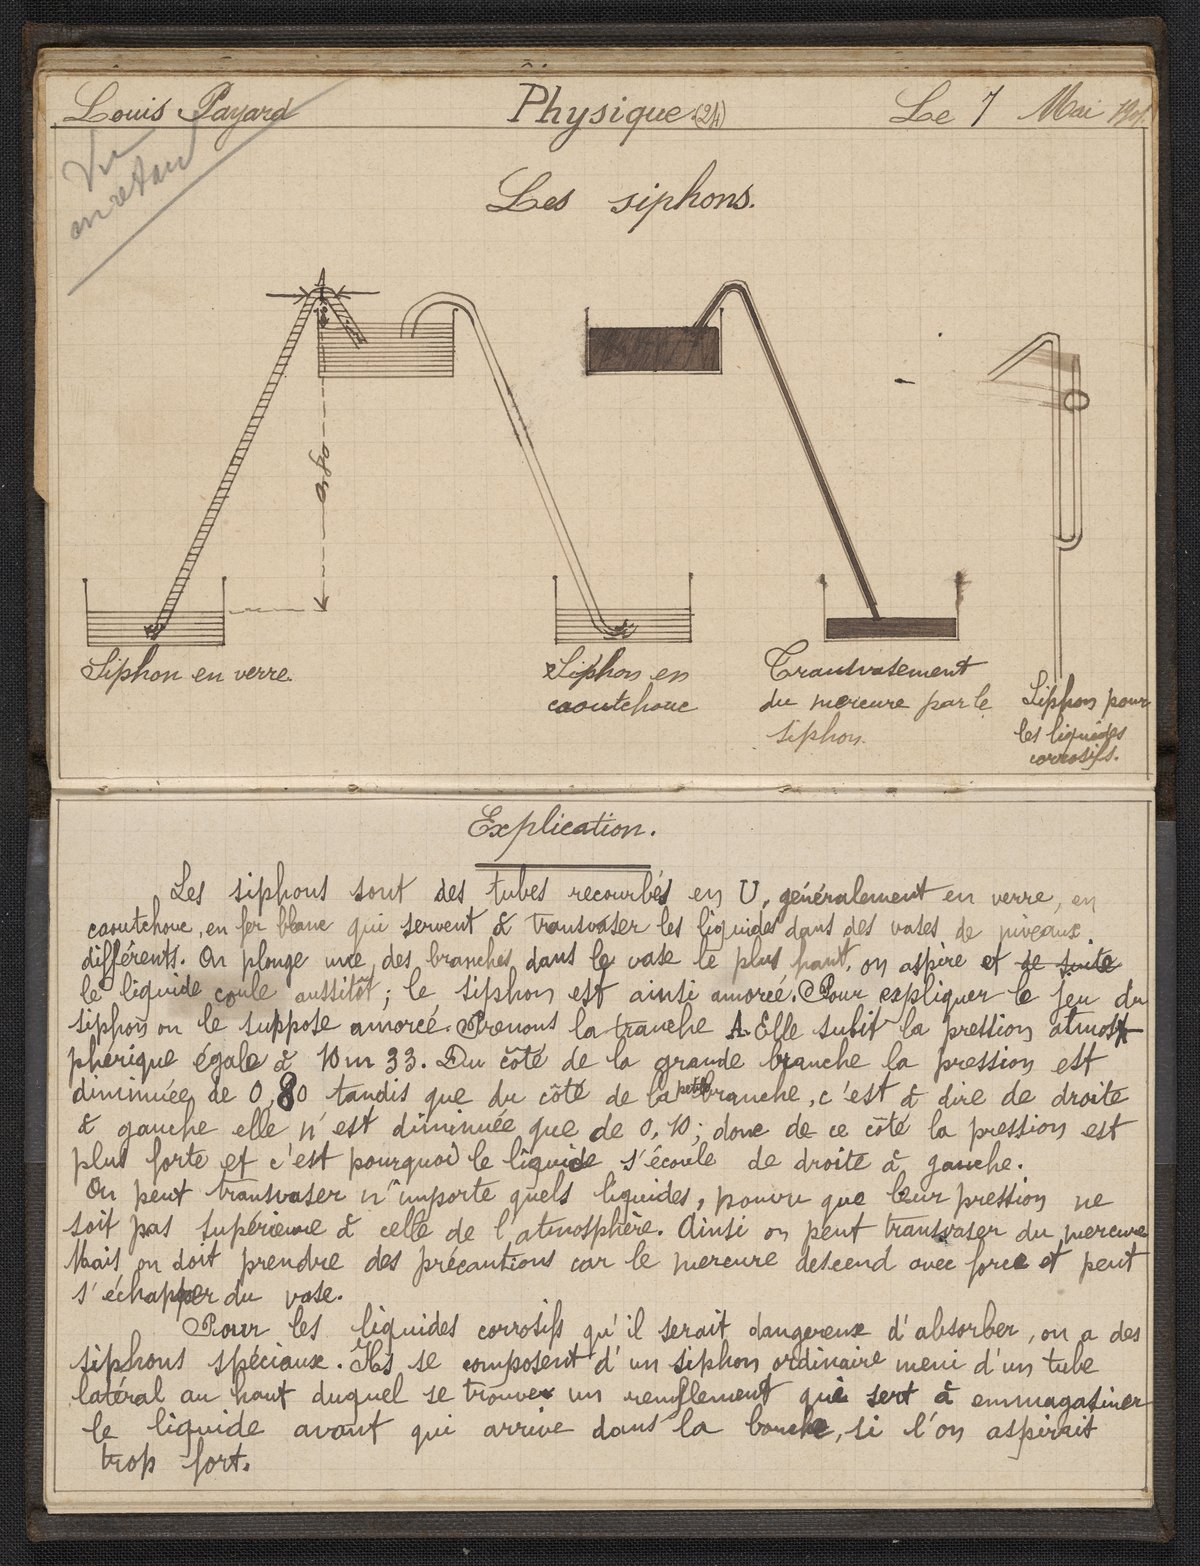 Louis Payard
Physique (2h)
Le 7 Mai
Vu
en retard
Les siphons.
0,80
Siphon en verre.
Siphon en
caoutchouc
Transvasement
du mercure par le
siphon.
Siphon pour
les liquides
corrosifs.
Explication.
Les siphons sont des tubes recourbés en U, généralement en verre, en
caoutchouc, en fer blanc qui servent à transvaser les liquides dans des vases de niveaux
différents. On plonge une des branches dans le vase le plus haut, on aspire et de suite
le liquide coule aussitôt ; le siphon est ainsi amorcé. Pour expliquer le jeu du
siphon on le suppose amorcé. Prenons la tranche A. Elle subit la pression atmos-
phérique égale à 10m 33. Du côté de la grande branche la pression est
diminuée de 0,80 tandis que du côté de la petite branche, c'est à dire de droite
à gauche elle n'est diminuée que de 0,10 ; donc de ce côté la pression est
plus forte et c'est pourquoi le liquide s'écoule de droite à gauche.
On peut transvaser n'importe quels liquides, pourvu que leur pression ne
soit pas supérieure à celle de l'atmosphère. Ainsi on peut transvaser du mercure
Mais on doit prendre des précautions car le mercure descend avec force et peut
s'échapper du vase.
Pour les liquides corrosifs qu'il serait dangereux d'absorber, on a des
siphons spéciaux. Ils se composent d'un siphon ordinaire muni d'un tube
latéral au haut duquel se trouve un renflement qui sert à emmagasiner
le liquide avant qui arrive dans la bouche, si l'on aspirait
trop fort.